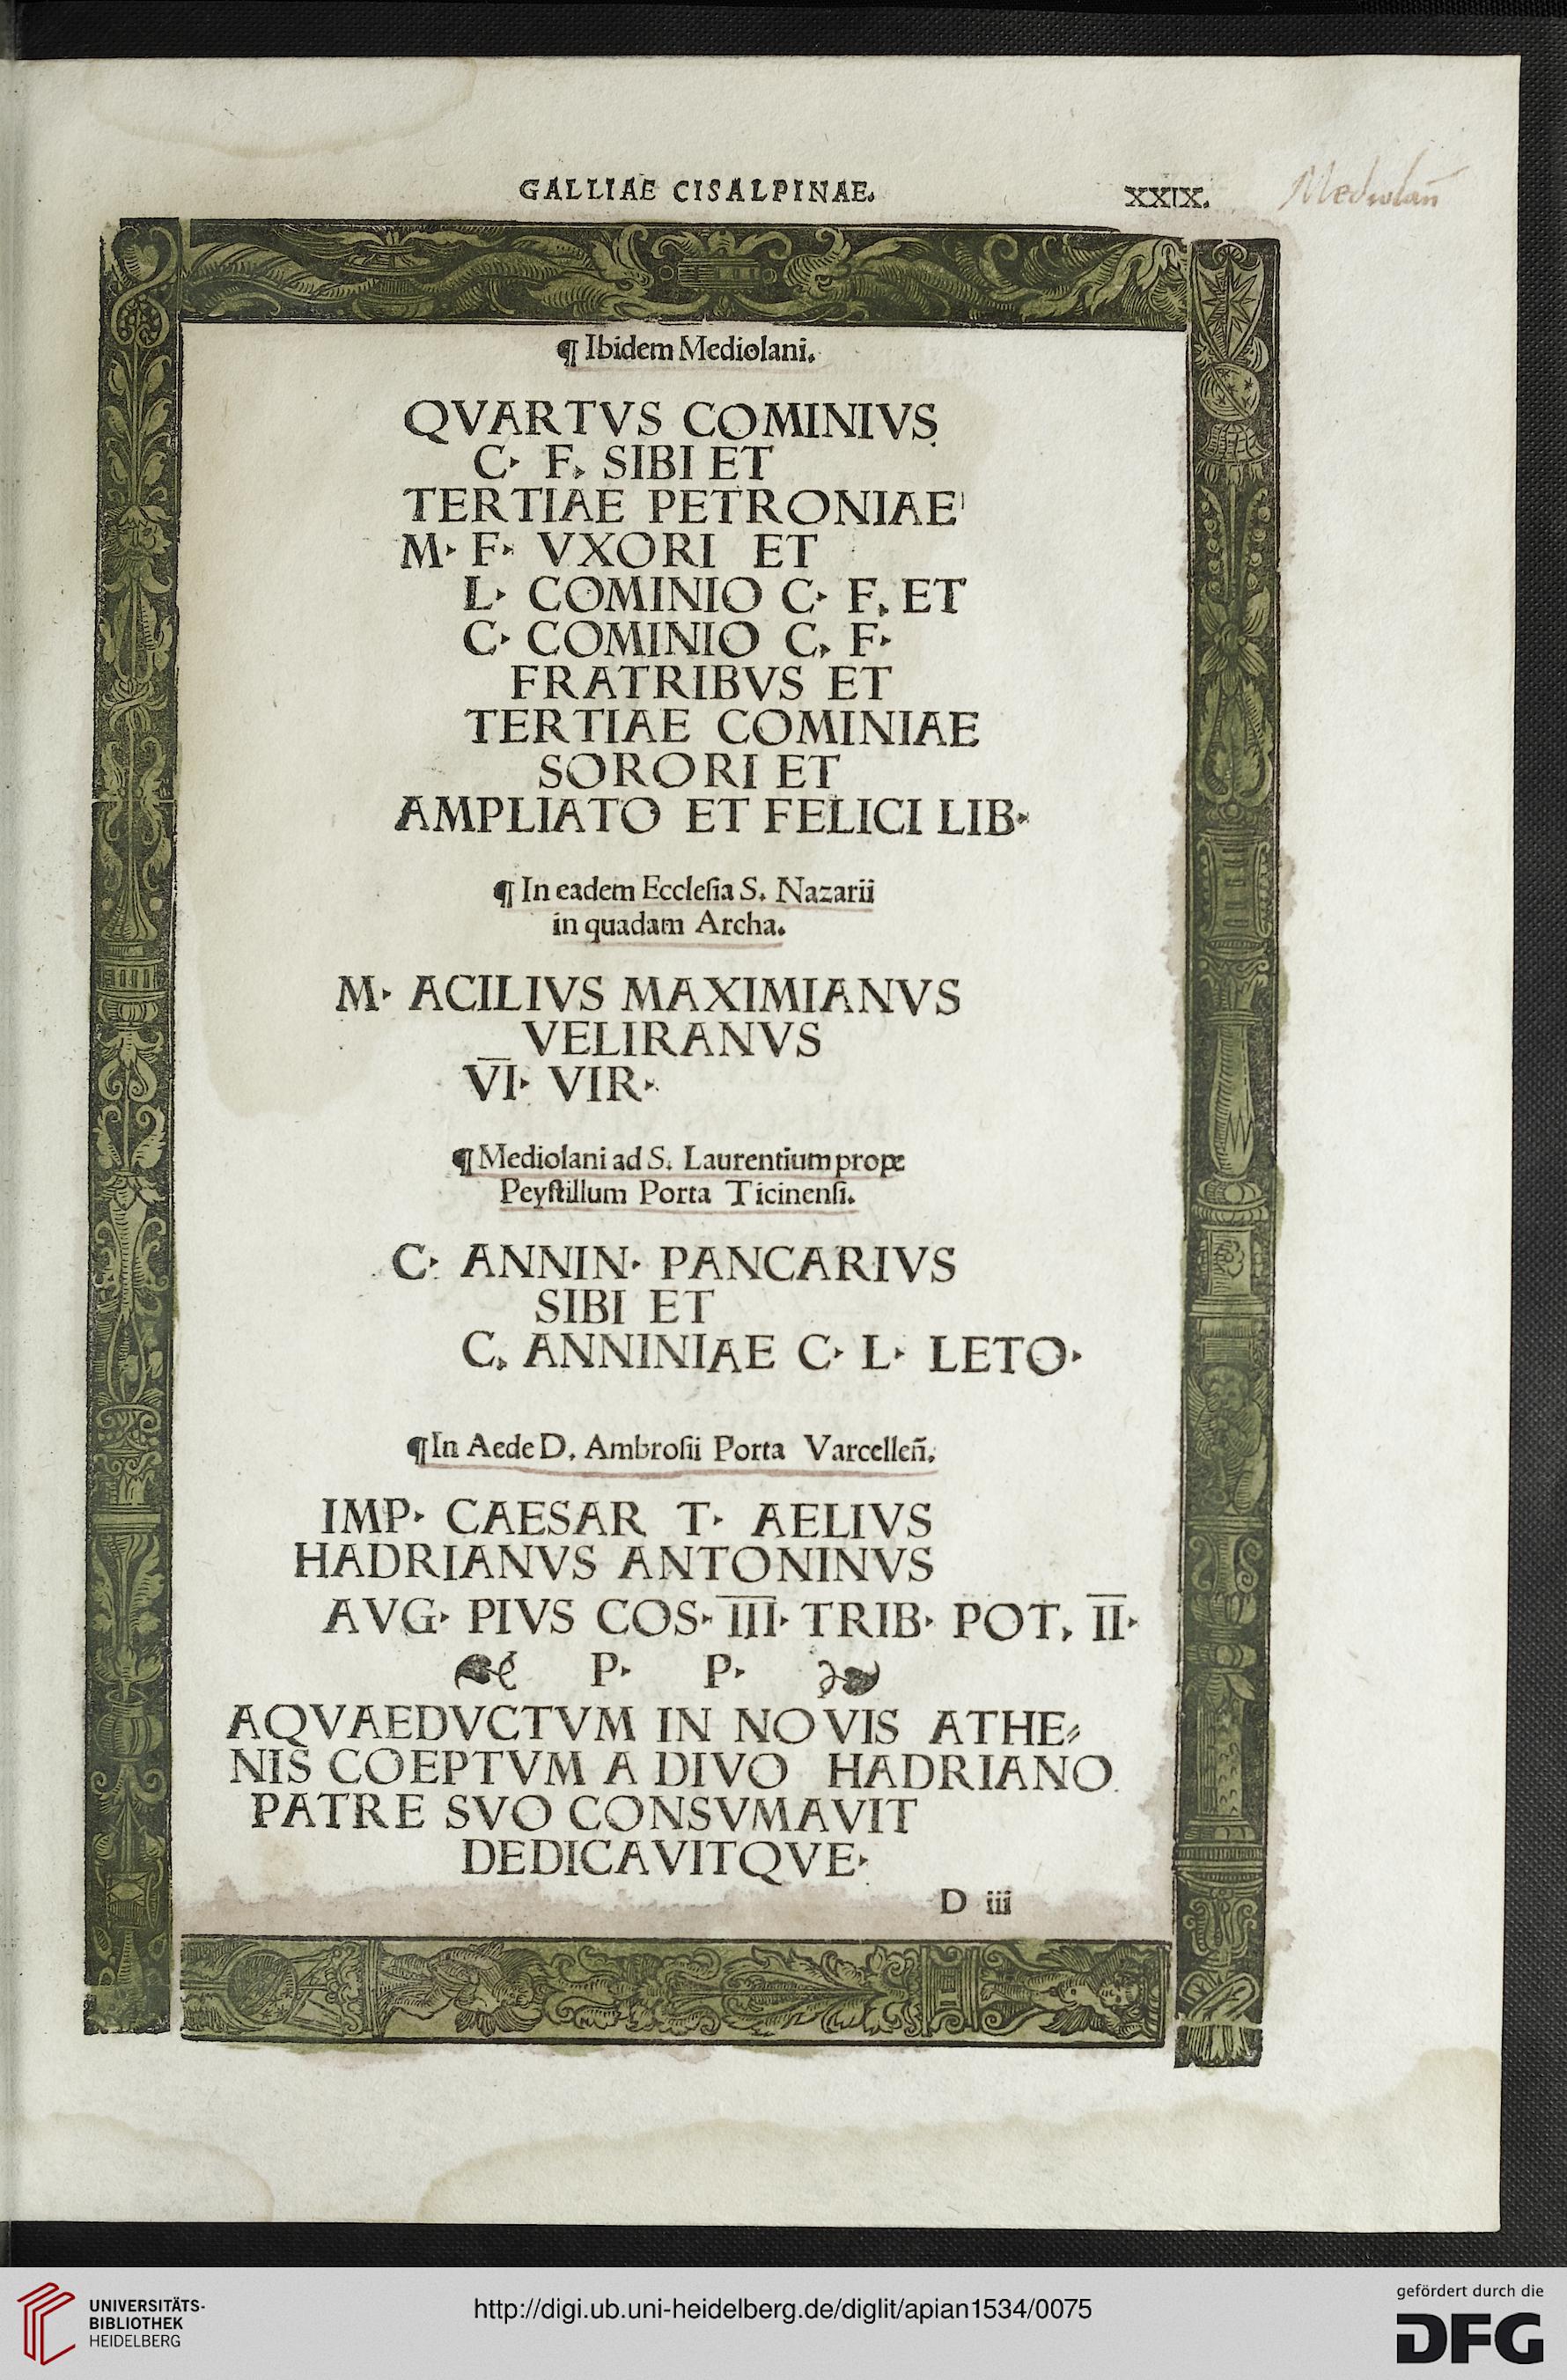 GALLIAE CISALPINAE. XXIX. Mediolañ
¶ Ibidem Mediolani.
QVARTVS COMINIVS
C· F. SIBI ET
TERTIAE PETRONIAE
M· F· VXORI ET
L· COMINIO C· F. ET
C· COMINIO C. F·
FRATRIBVS ET
TERTIAE COMINIAE
SORORI ET
AMPLIATO ET FELICI LIB·
¶ In eadem Eccleſia S. Nazarii
in quadam Archa.
M· ACILIVS MAXIMIANVS
VELIRANVS
V̅I̅· VIR·
¶ Mediolani ad S. Laurentium prope
Peyſtillum Porta Ticinenſi.
C· ANNIN· PANCARIVS
SIBI ET
C. ANNINIAE C· L· LETO·
¶ In Aede D. Ambroſii Porta Varcelleñ.
IMP· CAESAR T· AELIVS
HADRIANVS ANTONINVS
AVG· PIVS COS· I̅I̅I̅· TRIB· POT. I̅I̅·
❧ P· P· ❧
AQVAEDVCTVM IN NOVIS ATHE⸗
NIS COEPTVM A DIVO HADRIANO
PATRE SVO CONSVMAVIT
DEDICAVITQVE·
D iii
UNIVERSITÄTS-
BIBLIOTHEK
HEIDELBERG
http://digi.ub.uni-heidelberg.de/diglit/apian1534/0075
gefördert durch die
DFG